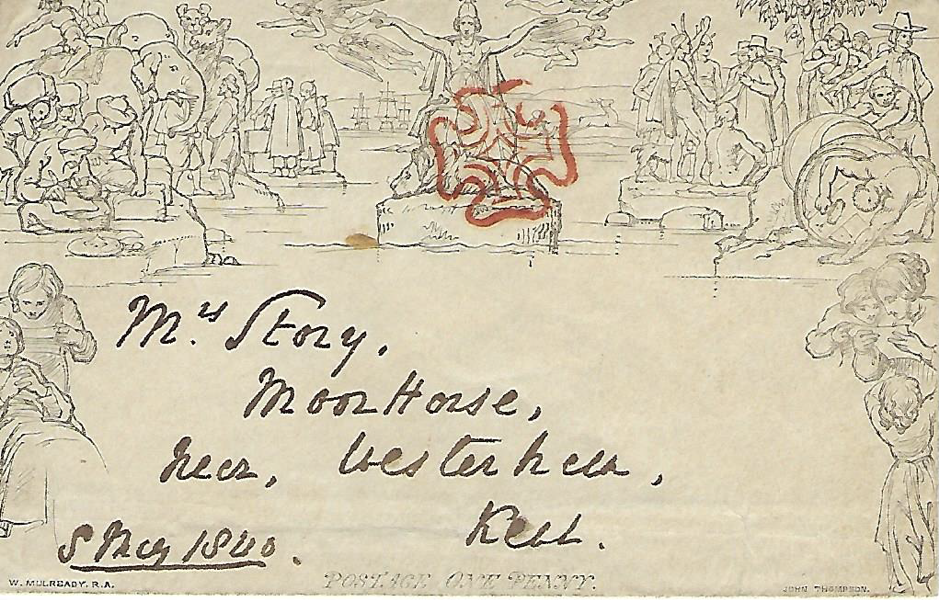 Mrs Story,
Moor House,
Near, Westerham,
Kent.
8 May 1840.
POSTAGE ONE PENNY.
W. MULREADY. R.A.
JOHN THOMPSON.